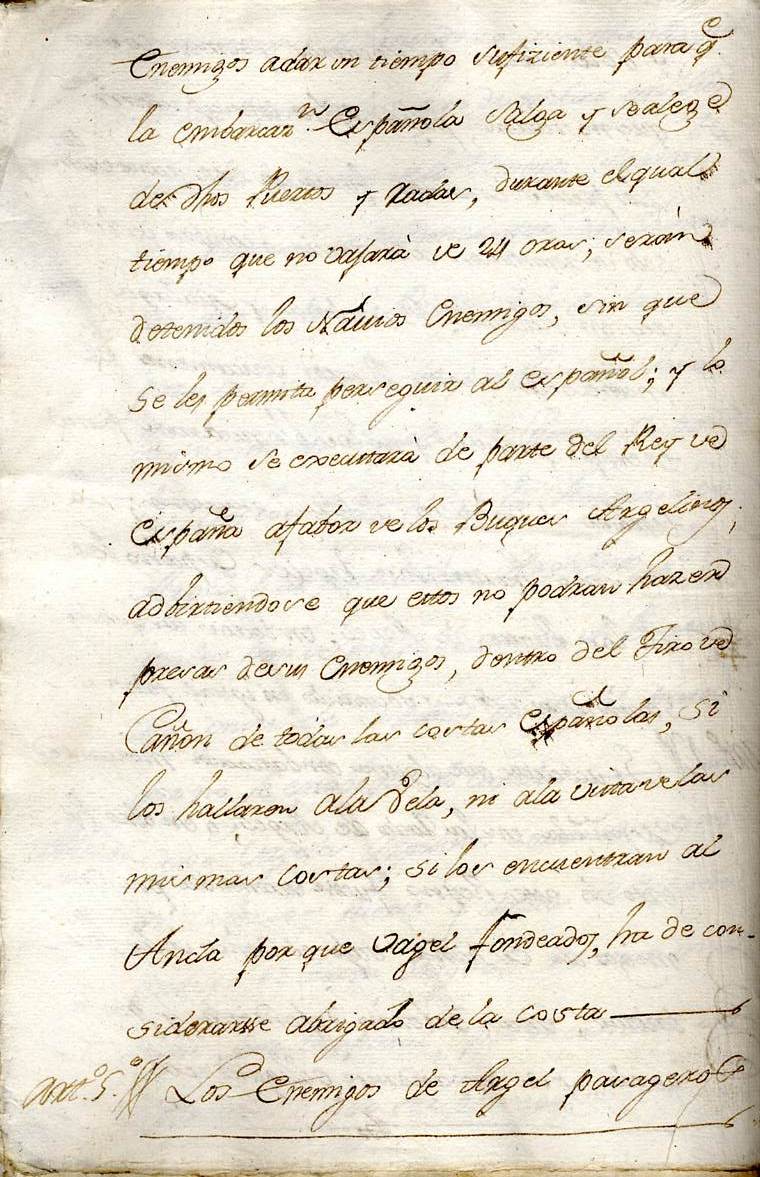 Enemigos a dar un tiempo sufiziente para q.e
la embarcaz.n Española salga y se aleje
de dhos Puertos y radas, durante el qual
tiempo que no vajarà de 24 oras, seràn
detenidos los Návios Enemigos, sin que
se les permita perseguir al español; y lo
mismo se executarà de parte del Rey de
España afabor de los Buques Argelinos,
adbirtiendose que estos no podran hazer
presas de sus Enemigos, dentro del Tiro de
Cañon de todas las costas Españolas, si
los hallaren ala Vela, ni ala vista de las
mismas Costas; si los encuentran al
Ancla por que Vagel fondeado, ha de con-
siderarsse abrigado de la Costa
Art.o 5.o Los Enemigos de Argel pasageros